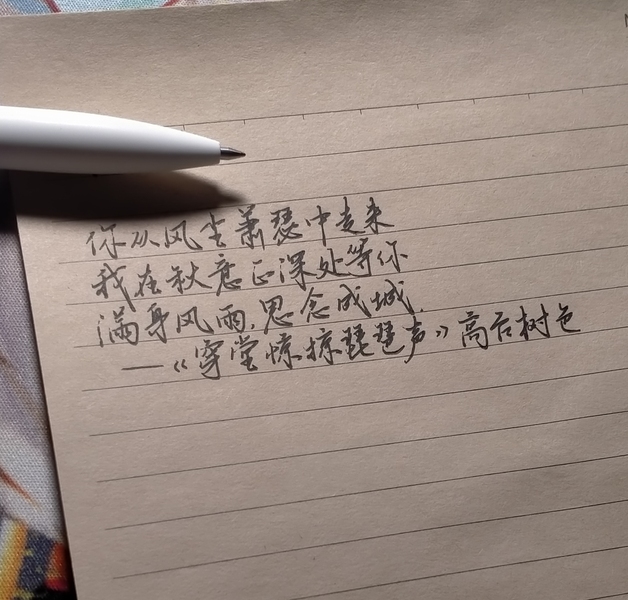 你从风尘萧瑟中走来
我在秋意正深处等你
满身风雨,思念成城.
——《穿堂惊掠琵琶声》高台树色